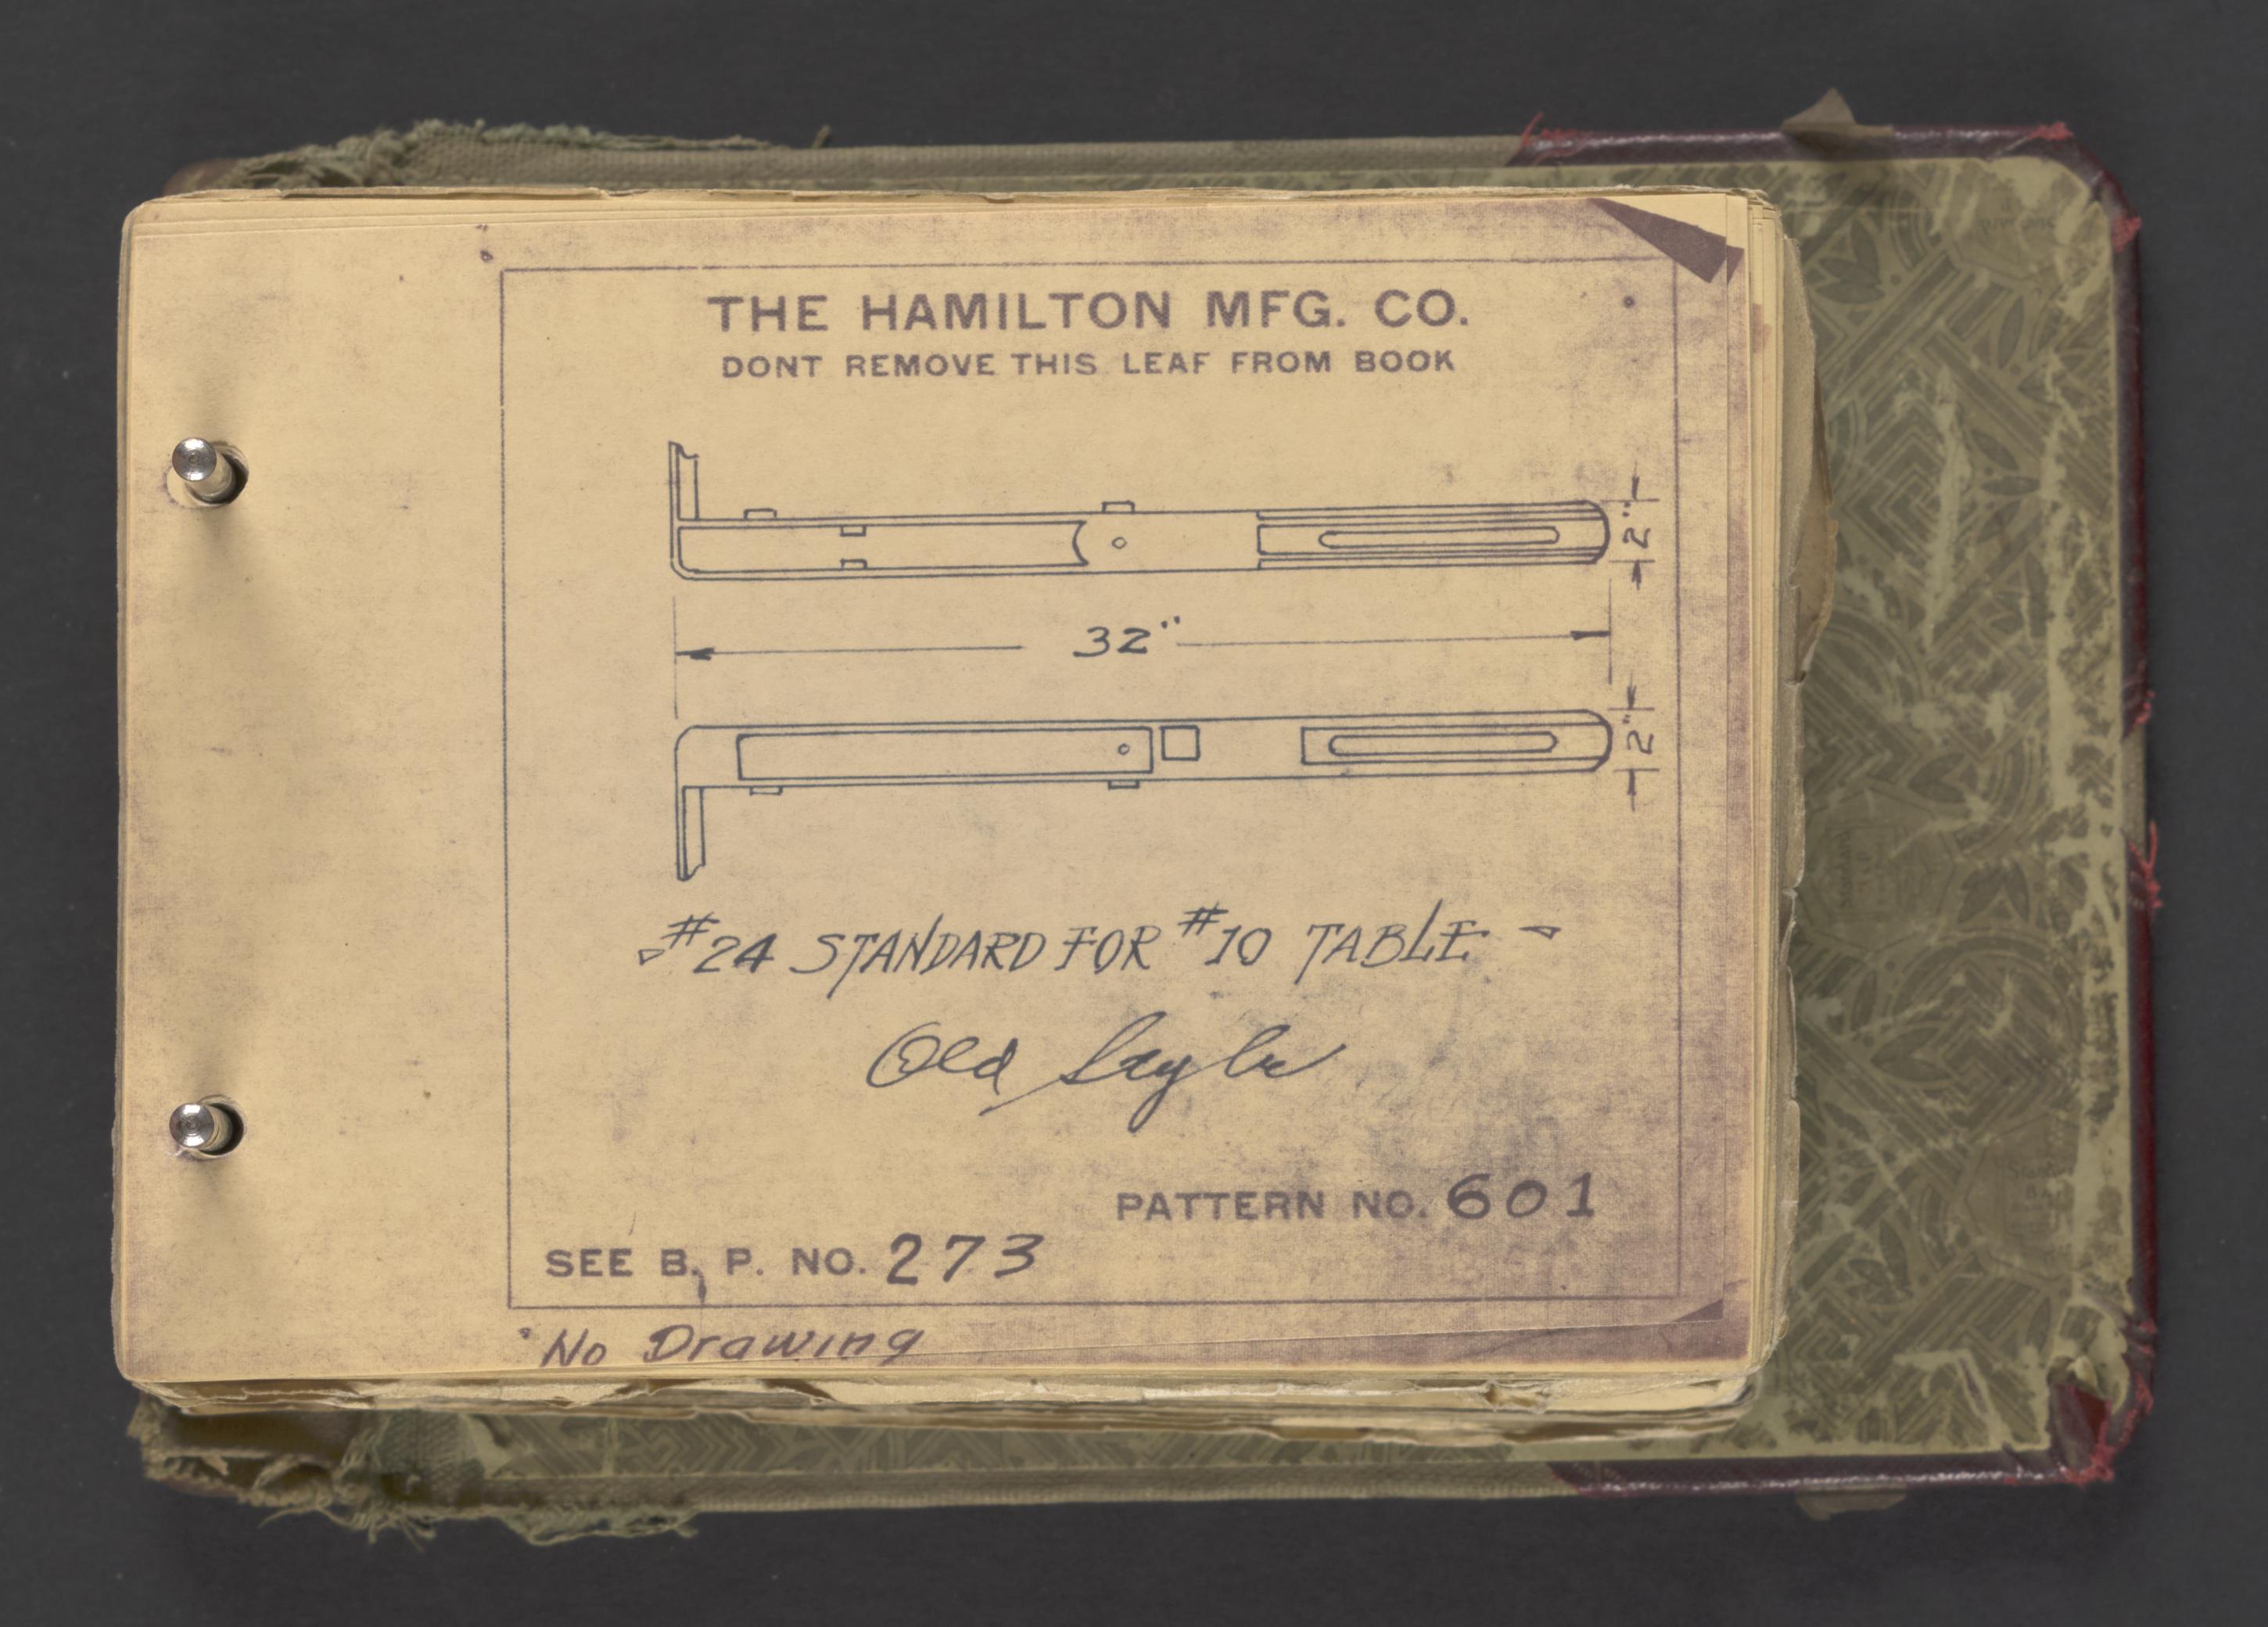 THE HAMILTON MFG. CO.
DONT REMOVE THIS LEAF FROM BOOK
2"
32"
2"
#24 STANDARD FOR #10 TABLE
Old Style
PATTERN NO. 601
SEE B. P. NO. 273
No Drawing